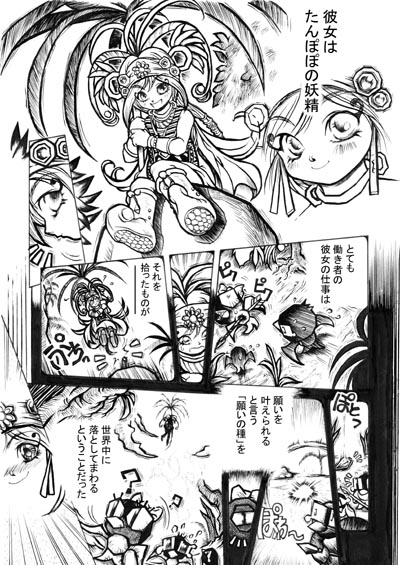 彼女は
たんぽぽの妖精
とても
働き者の
彼女の仕事は
ピコ
ピコ
それを
拾ったものが
ぷちっ
ぽとっ
願いを
叶えられる
と言う
「願いの種」を
世界中に
落としてまわる
ということだった